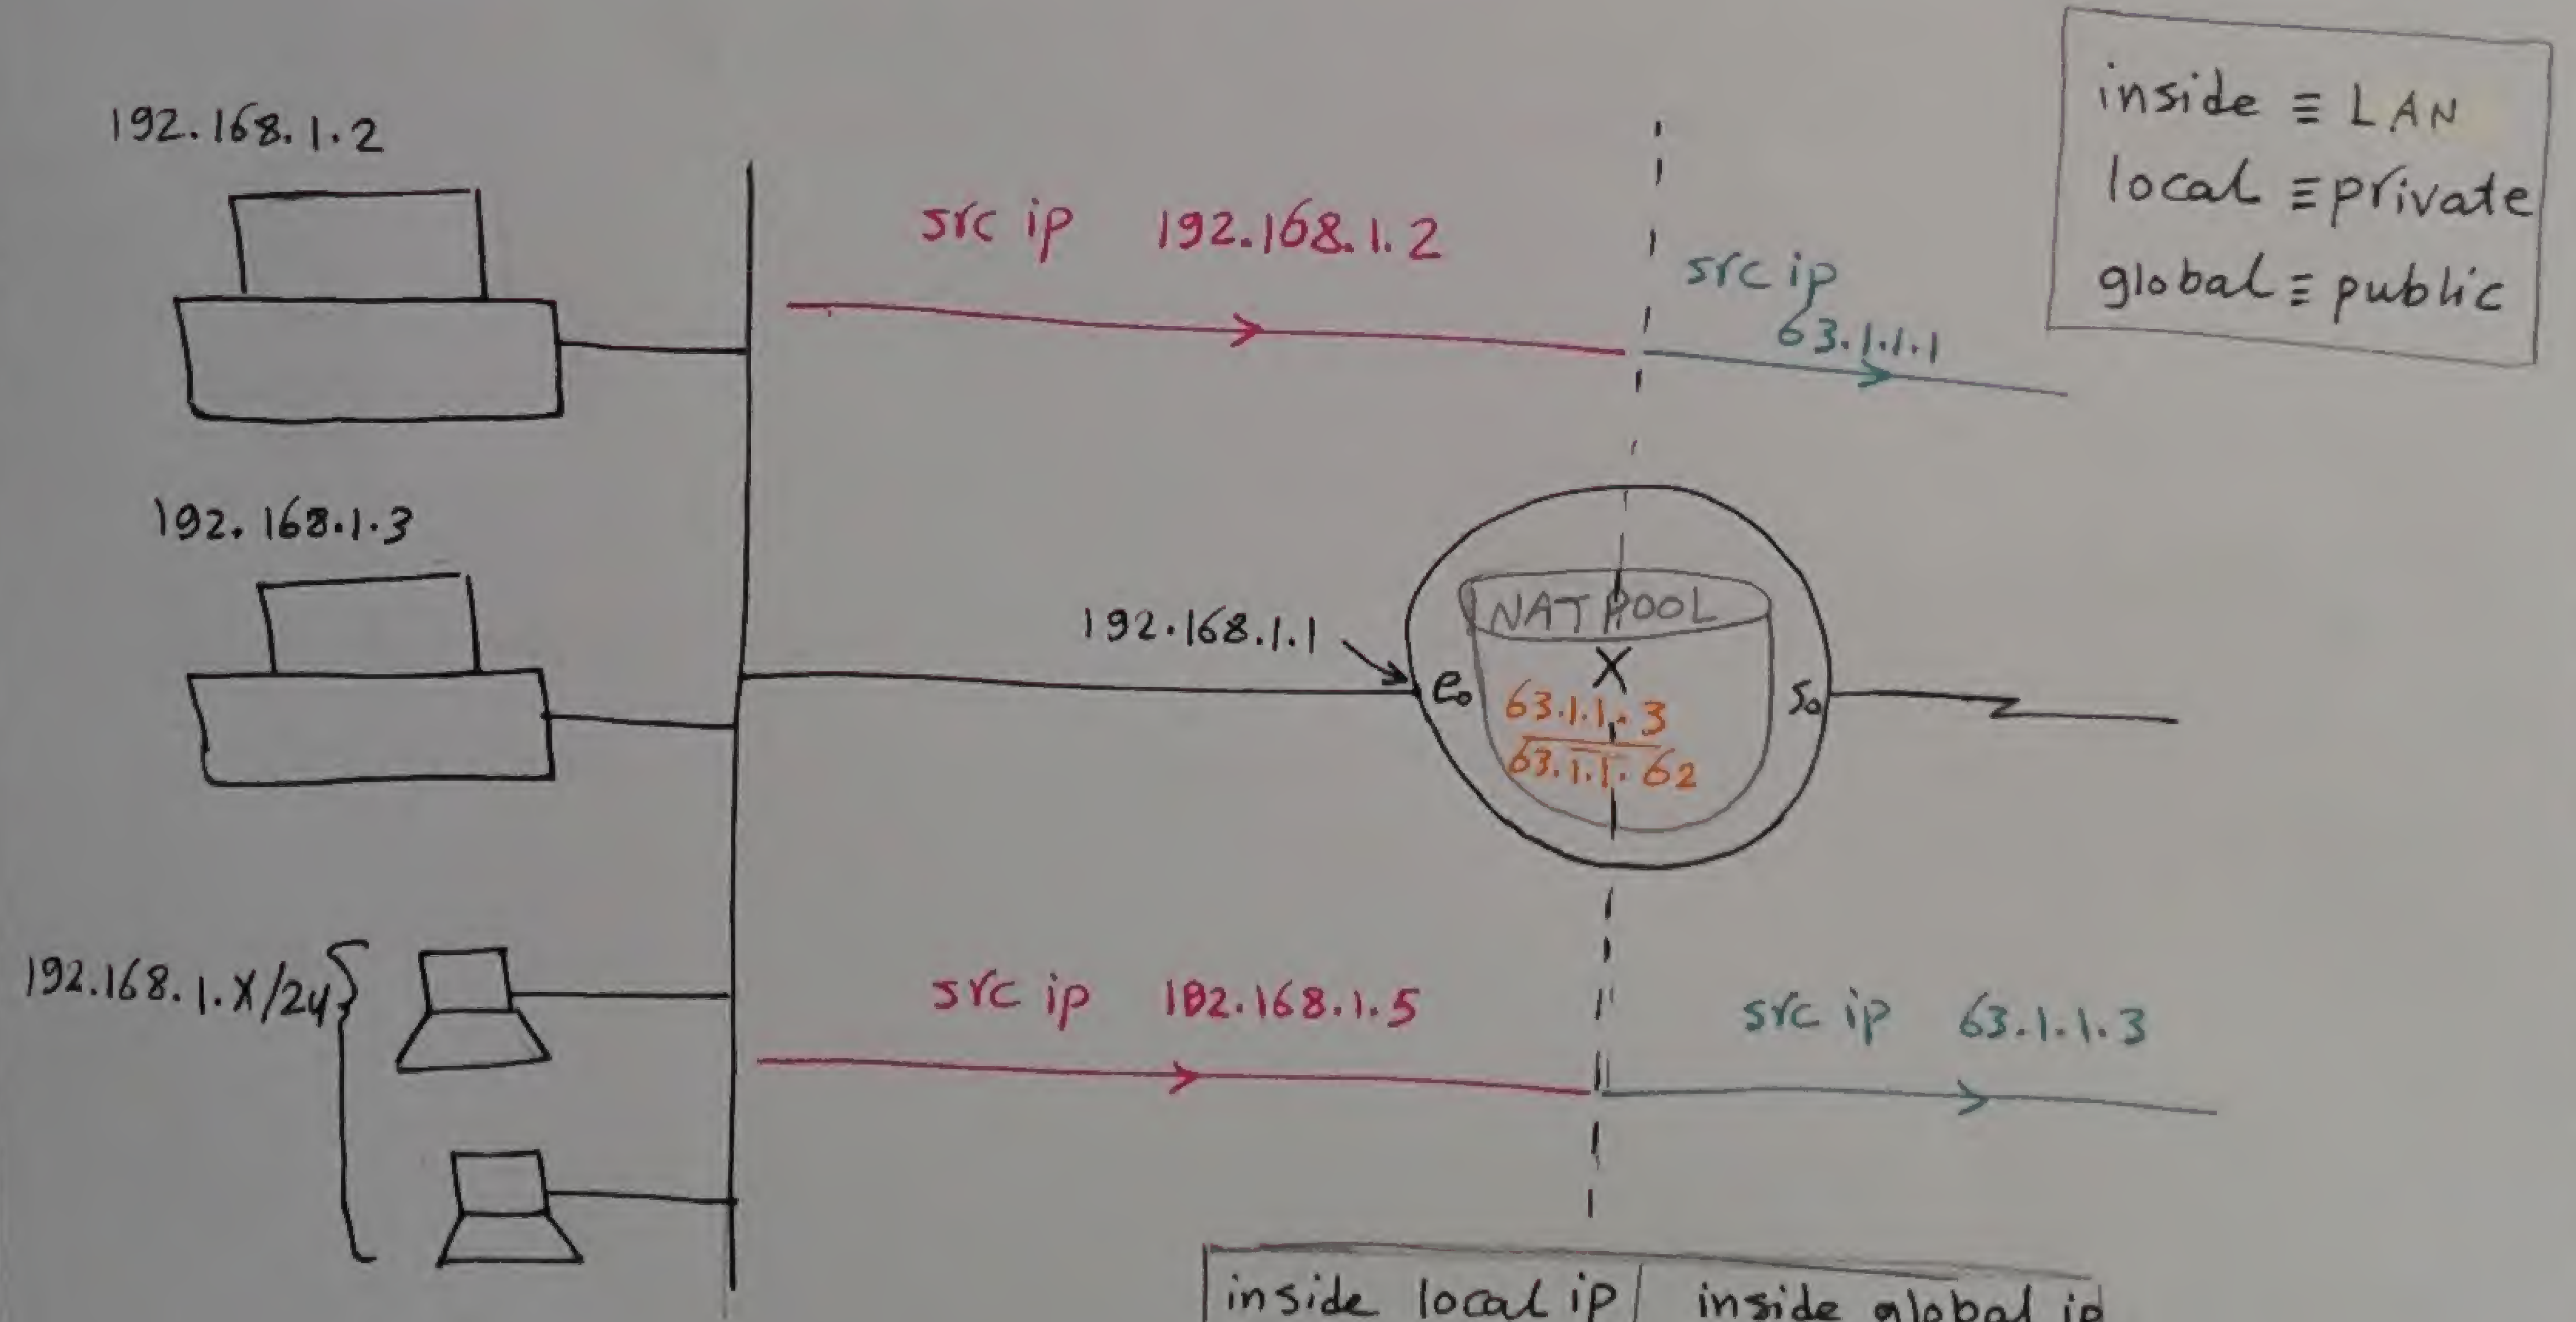 inside ≡ LAN
local ≡ private
global ≡ public
192.168.1.2
src ip 192.168.1.2
src ip
63.1.1.1
192.168.1.3
192.168.1.1
NAT POOL
X
e₀
s₀
63.1.1.3
63.1.1.62
192.168.1.X/24
src ip 192.168.1.5
src ip 63.1.1.3
inside local ip inside global ip